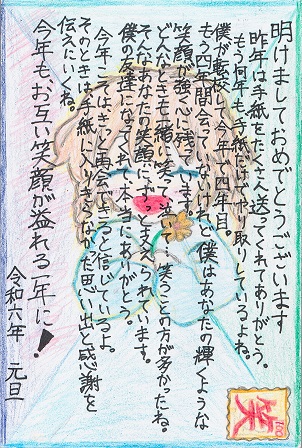 明けましておめでとうございます
昨年は手紙をたくさん送ってくれてありがとう。
もう何年も手紙だけでやり取りしているよね。
僕が転校して今年で四年目。
もう四年間会っていないけれど、僕はあなたの輝くような
笑顔が強く心に残っています。
どんなときも一緒に笑って 笑うことの方が多かったね。
そんなあなたの笑顔にずっと支えられています。
僕の友達になってくれて本当にありがとう。
今年こそはきっと再会できると信じているよ。
そのときは手紙に入りきらなかった思い出と感謝を
伝えにいくね。
今年も、お互い笑顔が溢れる一年に!
令和六年 元旦